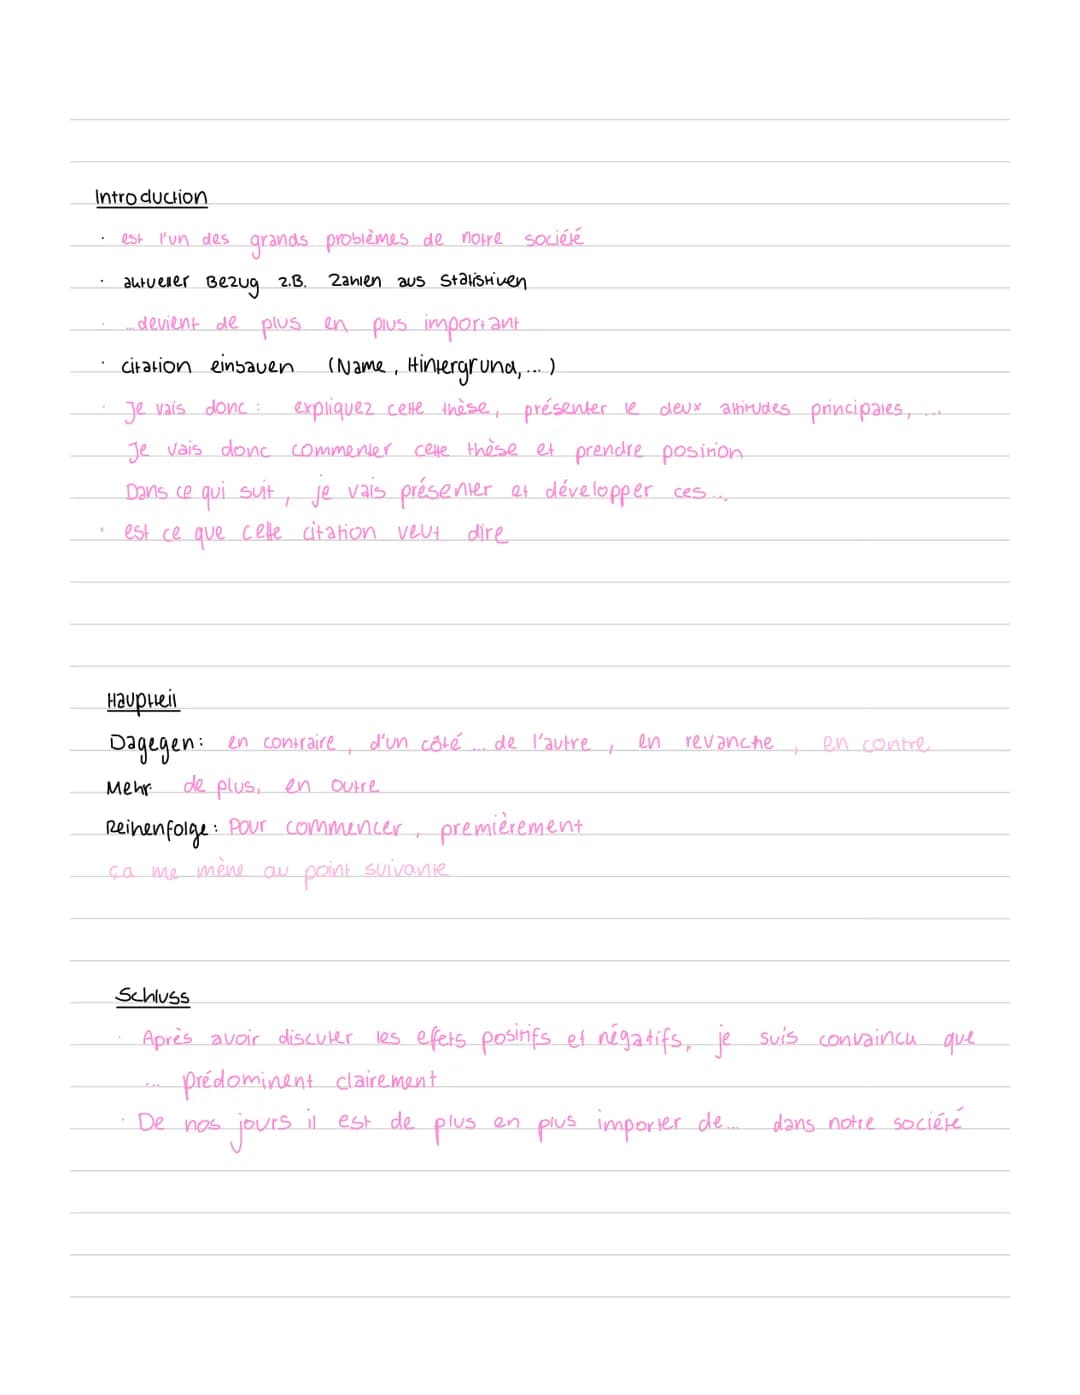 Introduction
· est l'un des grands problèmes de notre société
· aktueller Bezug z.B. Zahlen aus Statistiken
· ...devient de plus en plus important
· citation einbauen (Name, Hintergrund, ...)
· Je vais donc: expliquez cette thèse, présenter le deux attitudes principales, ...
Je vais donc commenter cette thèse et prendre position
Dans ce qui suit, je vais présenter et développer ces...
· est ce que cette citation veut dire
Hauptteil
Dagegen: en contraire, d'un côté ... de l'autre, en revanche, en contre
Mehr: de plus, en outre
Reihenfolge: Pour commencer, premièrement
ça me mène au point suivante
Schluss
· Après avoir discuter les effets positifs et négatifs, je suis convaincu que
... prédominent clairement
· De nos jours il est de plus en plus importer de... dans notre société